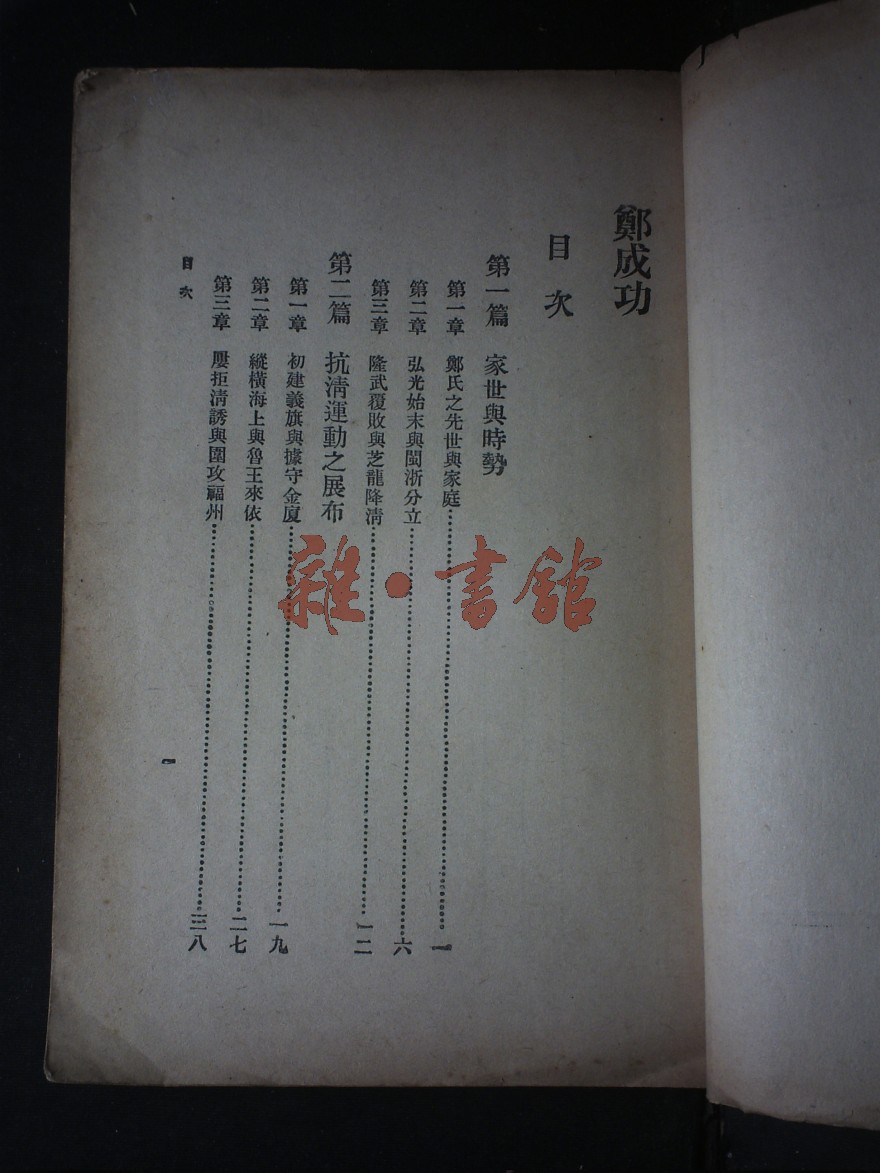 鄭成功
目次
第一篇 家世與時勢
第一章 鄭氏之先世與家庭……一
第二章 弘光始末與閩浙分立……六
第三章 隆武覆敗與芝龍降清……一二
第二篇 抗清運動之展布
第一章 初建義旗與據守金廈……一九
第二章 縱橫海上與魯王來依……二七
第三章 屢拒清誘與圍攻福州……三八
目次
一
雜·書館